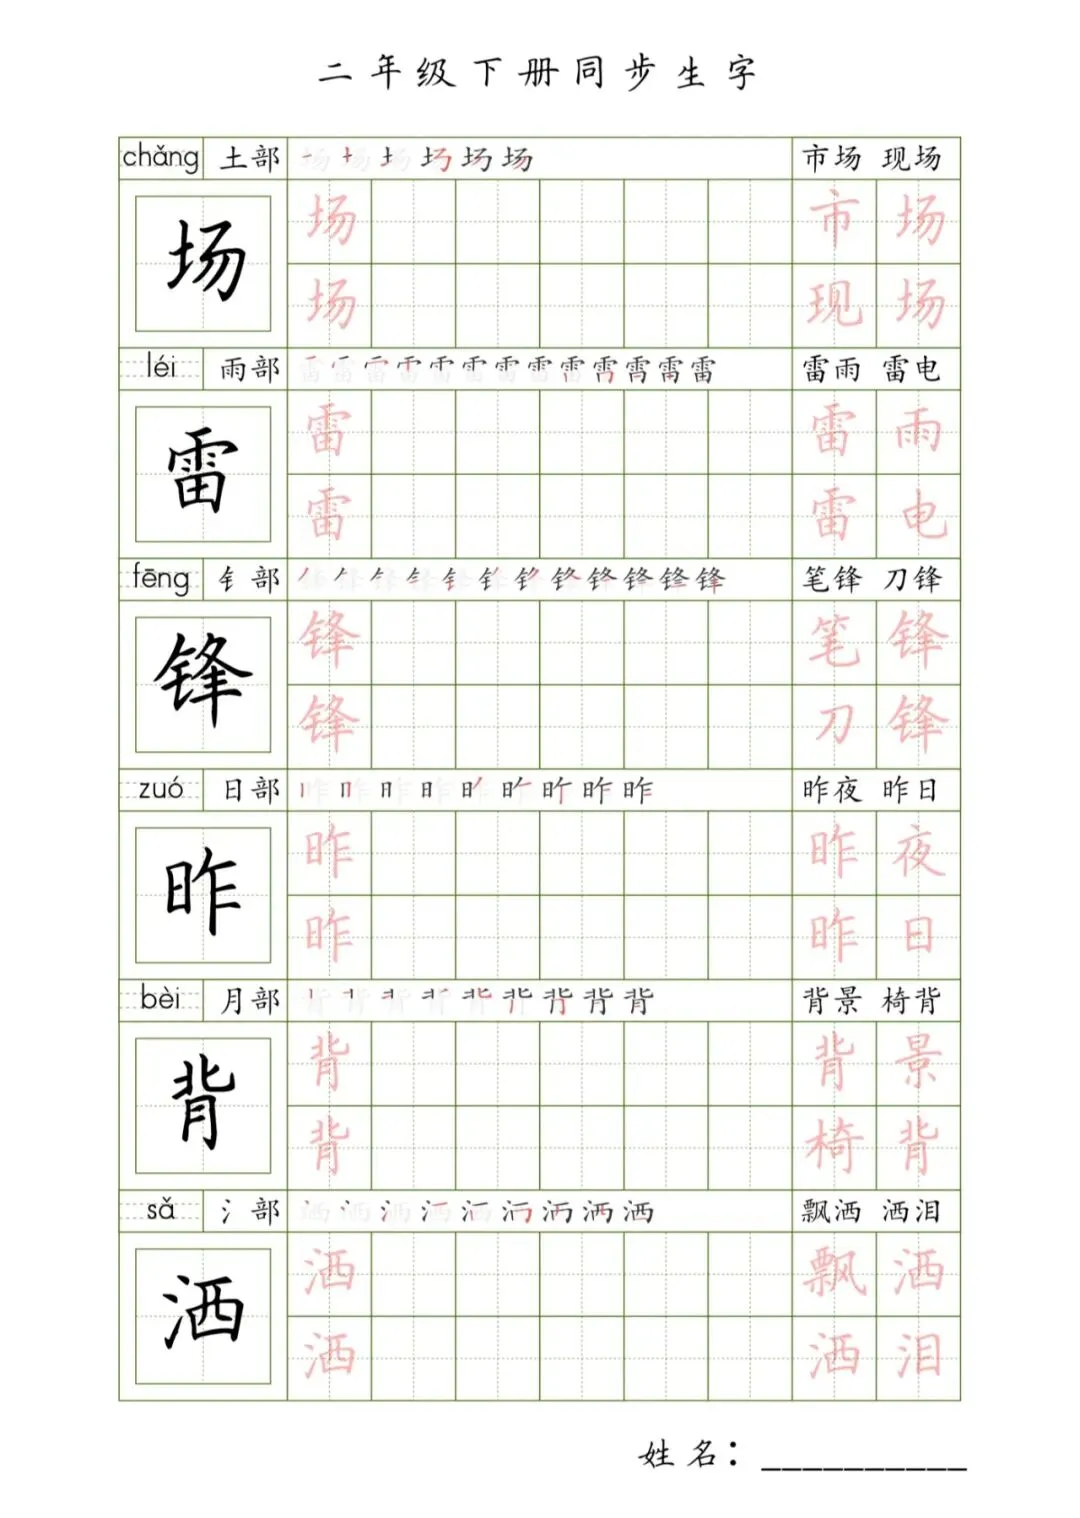 二年级下册同步生字
chǎng 土部 市场 现场
场 场 市场
场 现场
léi 雨部 雷雨 雷电
雷 雷 雷雨
雷 雷电
fēng 钅部 笔锋 刀锋
锋 锋 笔锋
锋 刀锋
zuó 日部 昨夜 昨日
昨 昨 昨夜
昨 昨日
bèi 月部 背景 椅背
背 背 背景
背 椅背
sǎ 氵部 飘洒 洒泪
洒 洒 飘洒
洒 洒泪
姓名：__________